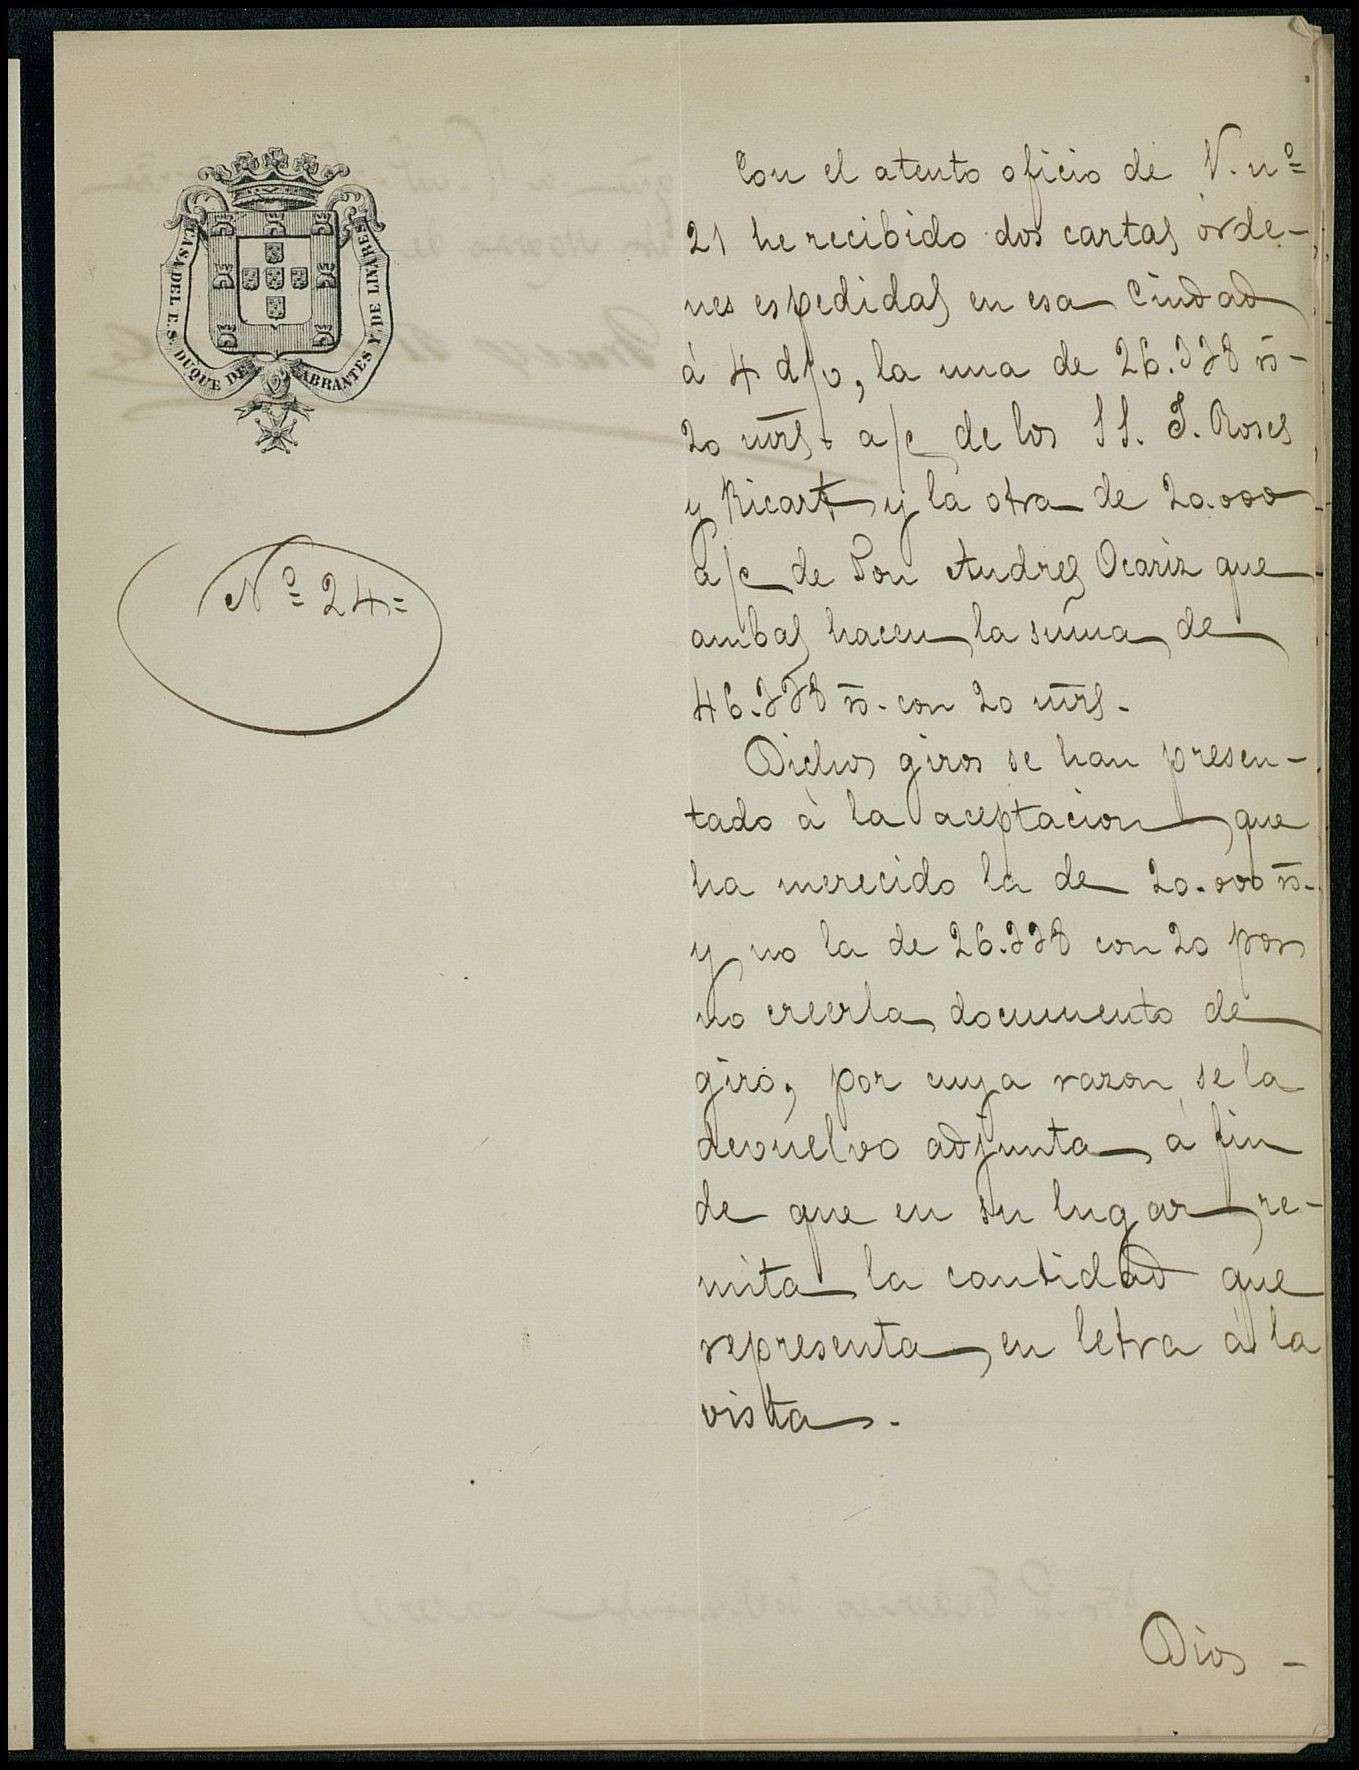 CASA DEL E.S. DUQUE DE ABRANTES Y DE LINARES
Nº 24=
Con el atento oficio de V. nº
21 he recibido dos cartas órde-
nes espedidas en esa Ciudad
á 4 d/v, la una de 26.338 rs-
20 mrs. a/c de los SS. J. Roses
y Ricart y la otra de 20.000
a/c de Don Andres Ocariz que
ambas hacen la suma de
46.338 rs. con 20 mrs.
Dichos giros se han presen-
tado á la aceptacion que
ha merecido la de 20.000 rs.
y no la de 26.338 con 20 por
no creerla documento de
giro, por cuya razon se la
devuelvo adjunta á fin
de que en su lugar re-
mita la cantidad que
representa en letra á la
vista.
Dios -